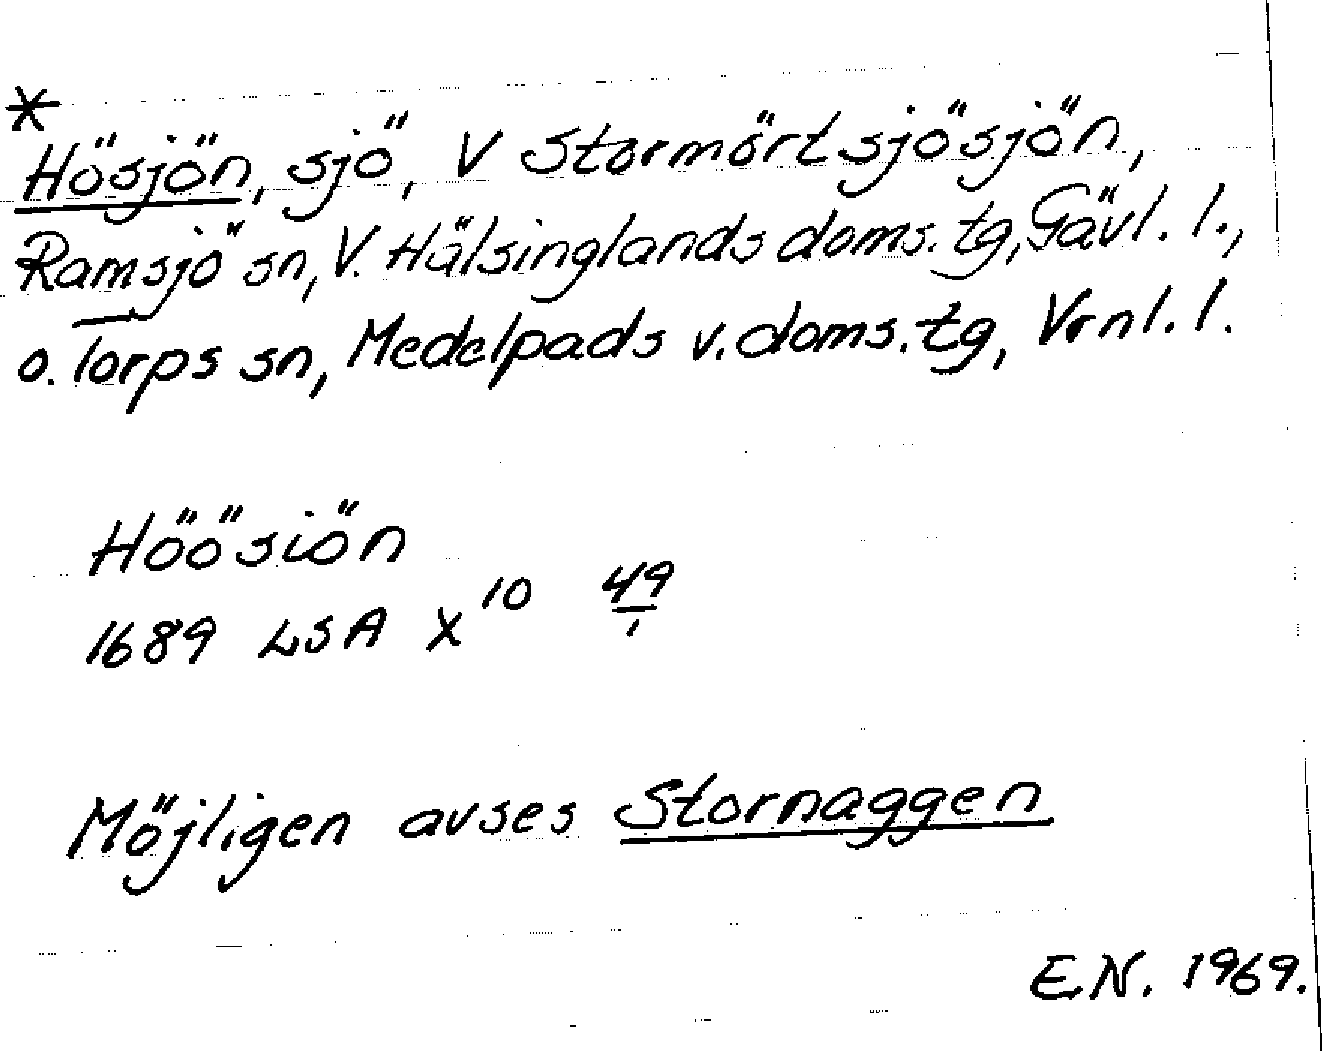 *
Hösjön, sjö, V Stormörtsjösjön,
Ramsjö sn, V. Hälsinglands doms. tg, Gävl. l.,
o. Torps sn, Medelpads v. doms. tg, Vrnl. l.
Höösiön
1689 LSA X 10 49/1
Möjligen avses Stornaggen
E.N. 1969.